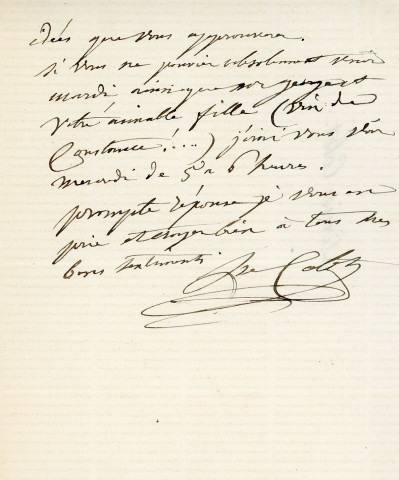 idées que vous approuverez.
Si vous ne pouviez absolument venir
mardi ainsi que
votre aimable fille (vin de
Constance!....) j'irai vous voir
mercredi de 5 à 6 heures.
prompte réponse je vous en
prie et croyez bien à tous mes
bons sentiments
Colet